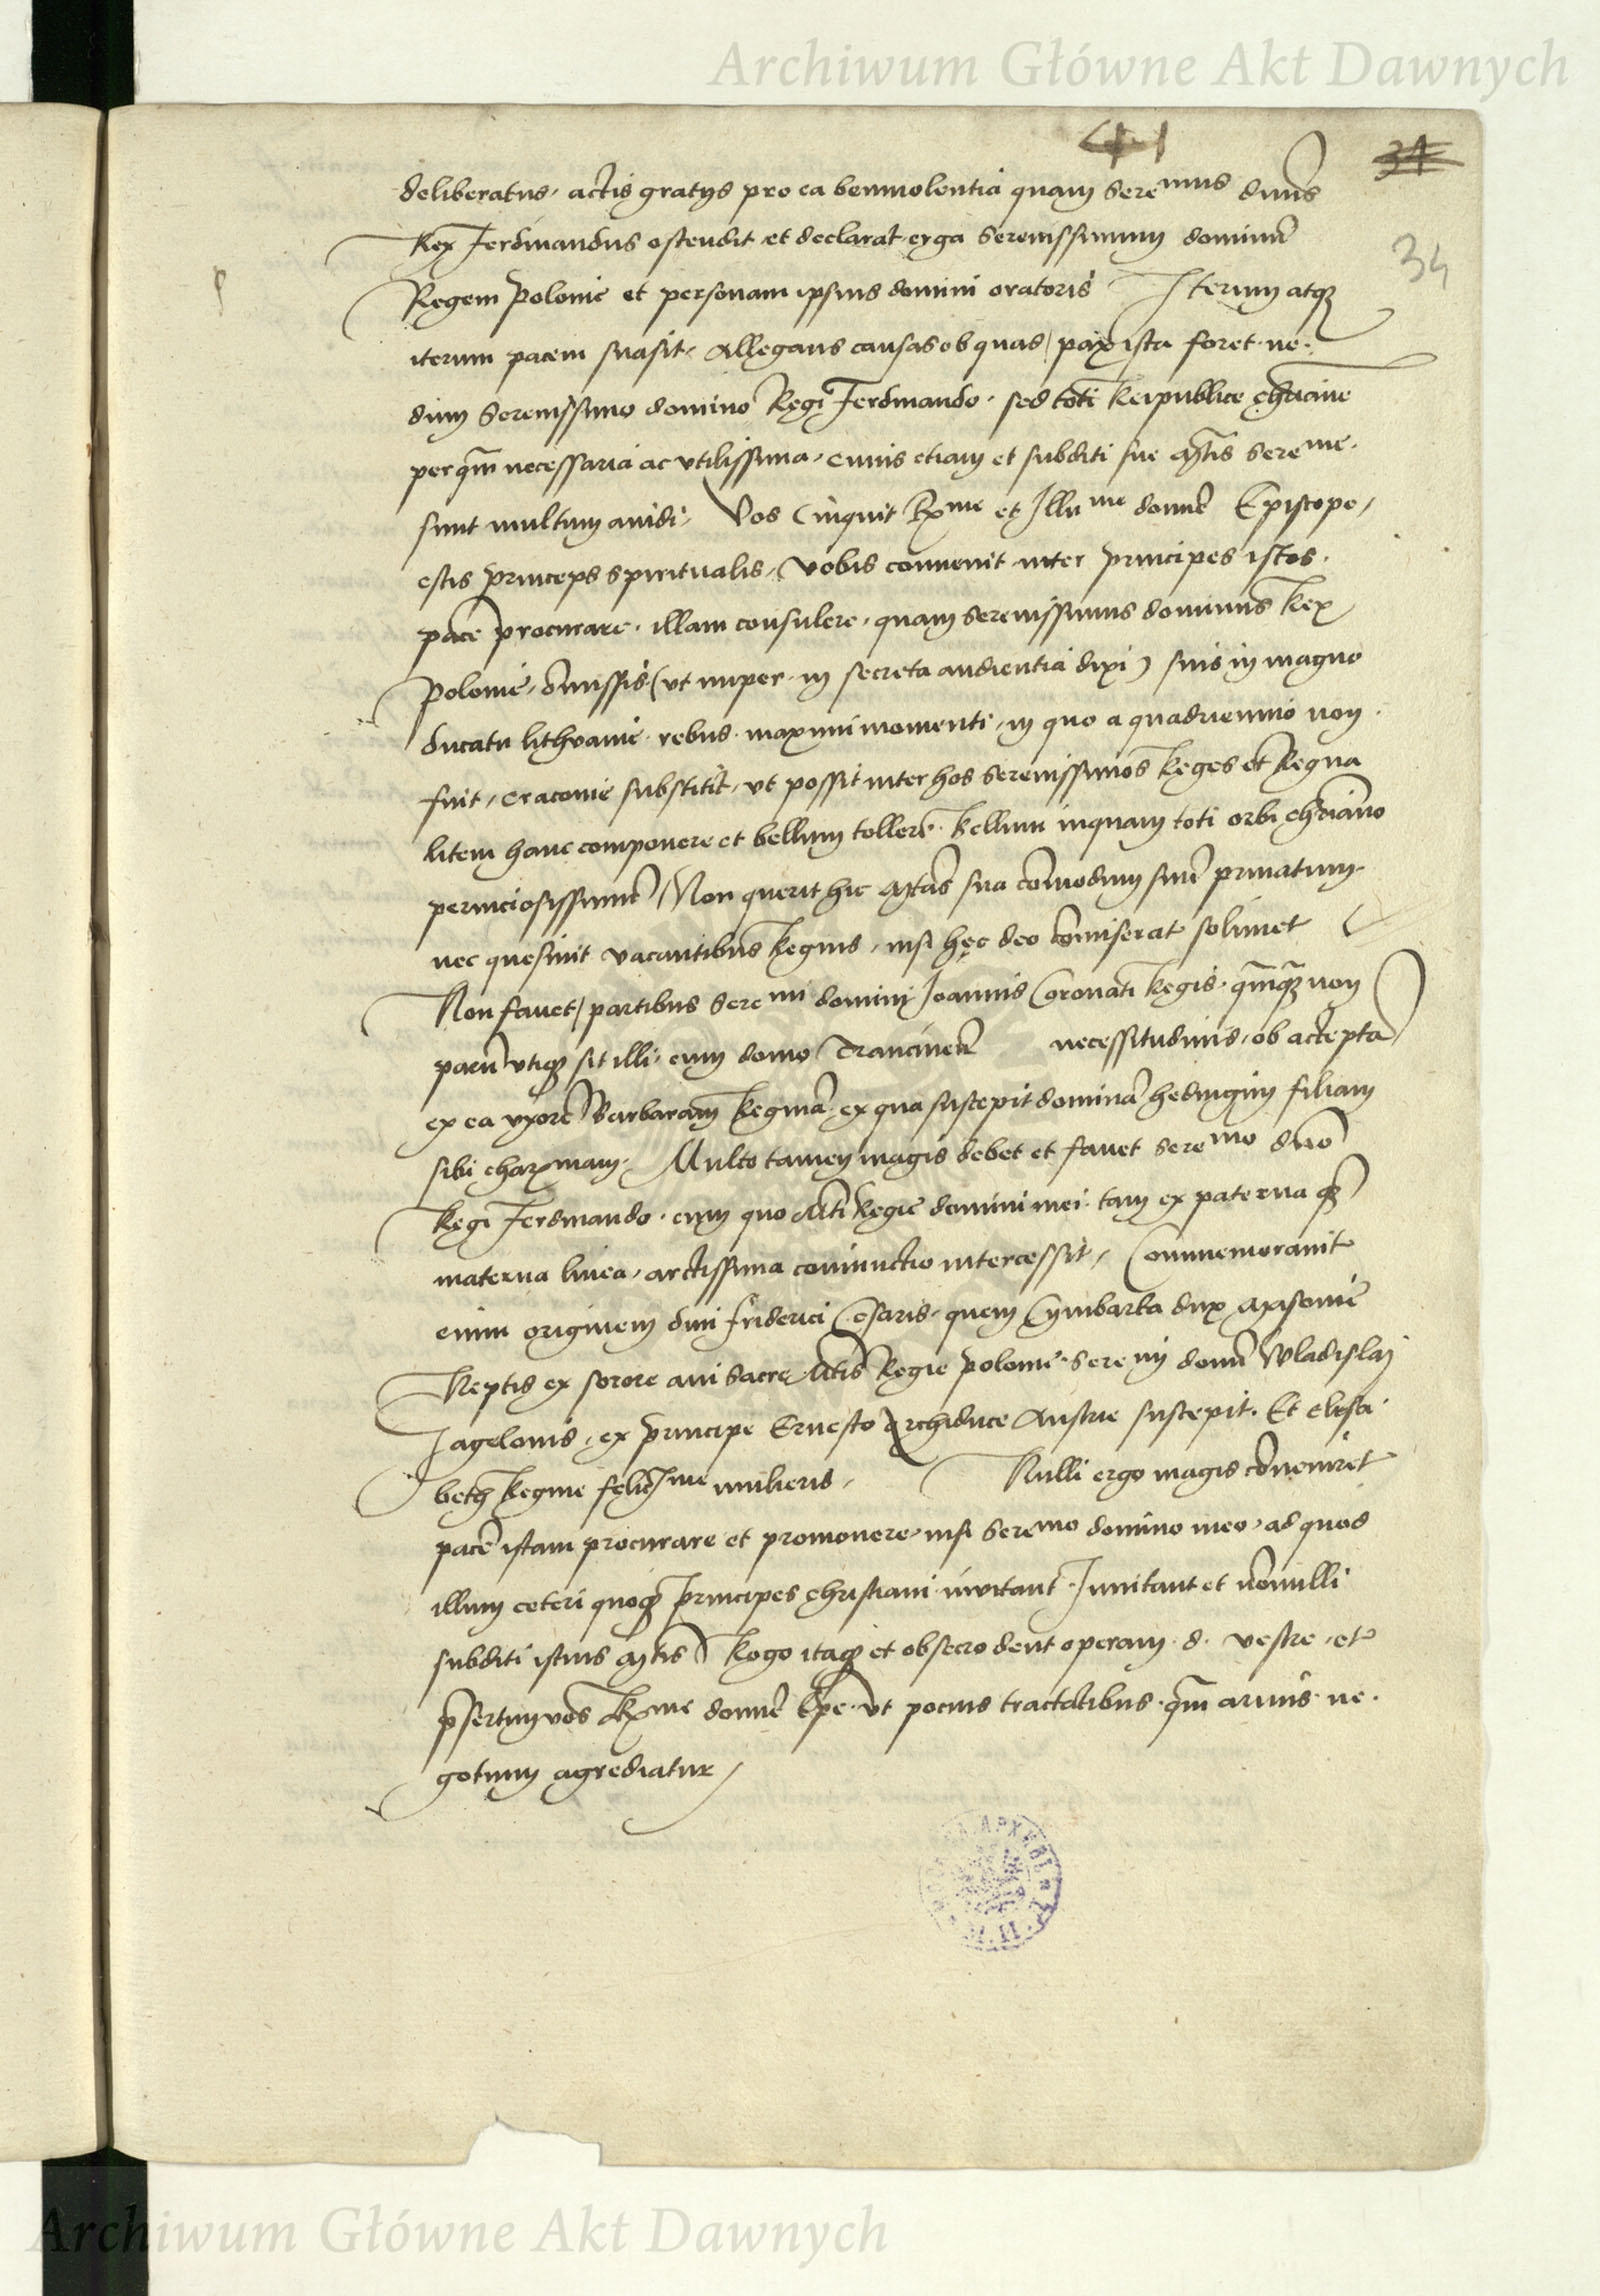 Archiwum Główne Akt Dawnych
41
34
34
deliberatus, actis gratys pro ea beniuolentia quam Sereᵐᵘˢ dnus
Rex Ferdinandus ostendit et declarat erga Serenissimum dominũ
Regem Polonie et personam ipsius domini oratoris Iterum atqʒ
iterum pacem suasit, Allegans causas ob quas pax ista foret ne.
dum Serenissimo domino Regi Ferdinando. sed toti Reipublice chr̃iane
perqm̃ necessaria ac vtilissima, cuius etiam et subditi sue Mt̃is Sereᵐᵉ.
sunt multum auidi, Vos (inquit Rxᵐᵉ et Illuᵐᵉ domĩe Episcope,
estis princeps spiritualis, Vobis conuenit inter principes istos.
pacẽ procurare. illam consulere, quam Serenissimus dominus Rex
Polonie, omissis (vt nuper in secreta audientia dixi) suis in magno
ducatu lithvanie rebus maximi momenti, in quo a quadriennio non
fuit, Cracouie substitit, vt possit inter hos Serenissimos Reges et Regna
litem hanc componere et bellum tollere. bellum inquam toti orbi chr̃iano
perniciosissimũ Non querit hic Mt̃as sua cõmodum suũ priuatum.
nec quesiuit vacantibus Regnis, nisi hęc deo cõmiserat solimet
Non fauet partibus Sereᵐⁱ domini Ioannis Coronati Regis. qm̃qʒ non
parũ vtiqʒ sit illi, cum domo Trancinen̄ necessitudinis, ob acceptã
ex ea vxorẽ Barbaram Reginã. ex qua suscepit dominã hedwigim filiam
sibi charxmam. Multo tamen magis debet et fauet Sereᵐᵒ dno
Regi Ferdinando. cum quo Mt̃i Regie domini mei. tam ex paterna qʒ
materna linea, arctissima coniunctio intercessit, Commemorauit
enim originem diui friderici Cesaris, quem Cymbarka dux Masouie
Neptis ex sorore aui Sacre Mt̃is Regie Polonie. Sereᵐⁱ domĩ Wladislaj
Jagelonis, ex principe Ernesto Archiduce Austrie suscepit. Et Elisa
beth Regine felicᵐᵉ mulieris, Nulli ergo magis cõueniret
pacẽ istam procurare et promouere, nisi Sereᵐᵒ domino meo, ad quod
illum ceteri quoqʒ principes christiani inuitant. Inuitant et nõnulli
subditi istius Mt̃is Rogo itaqʒ et obsecro dent operam. d. vestre, et
p̃sertim vos Rxᵐᵉ domĩe Ep̃e. vt pocius tractatibus. qm̃ armis. ne.
gotium agrediatur
Archiwum Główne Akt Dawnych